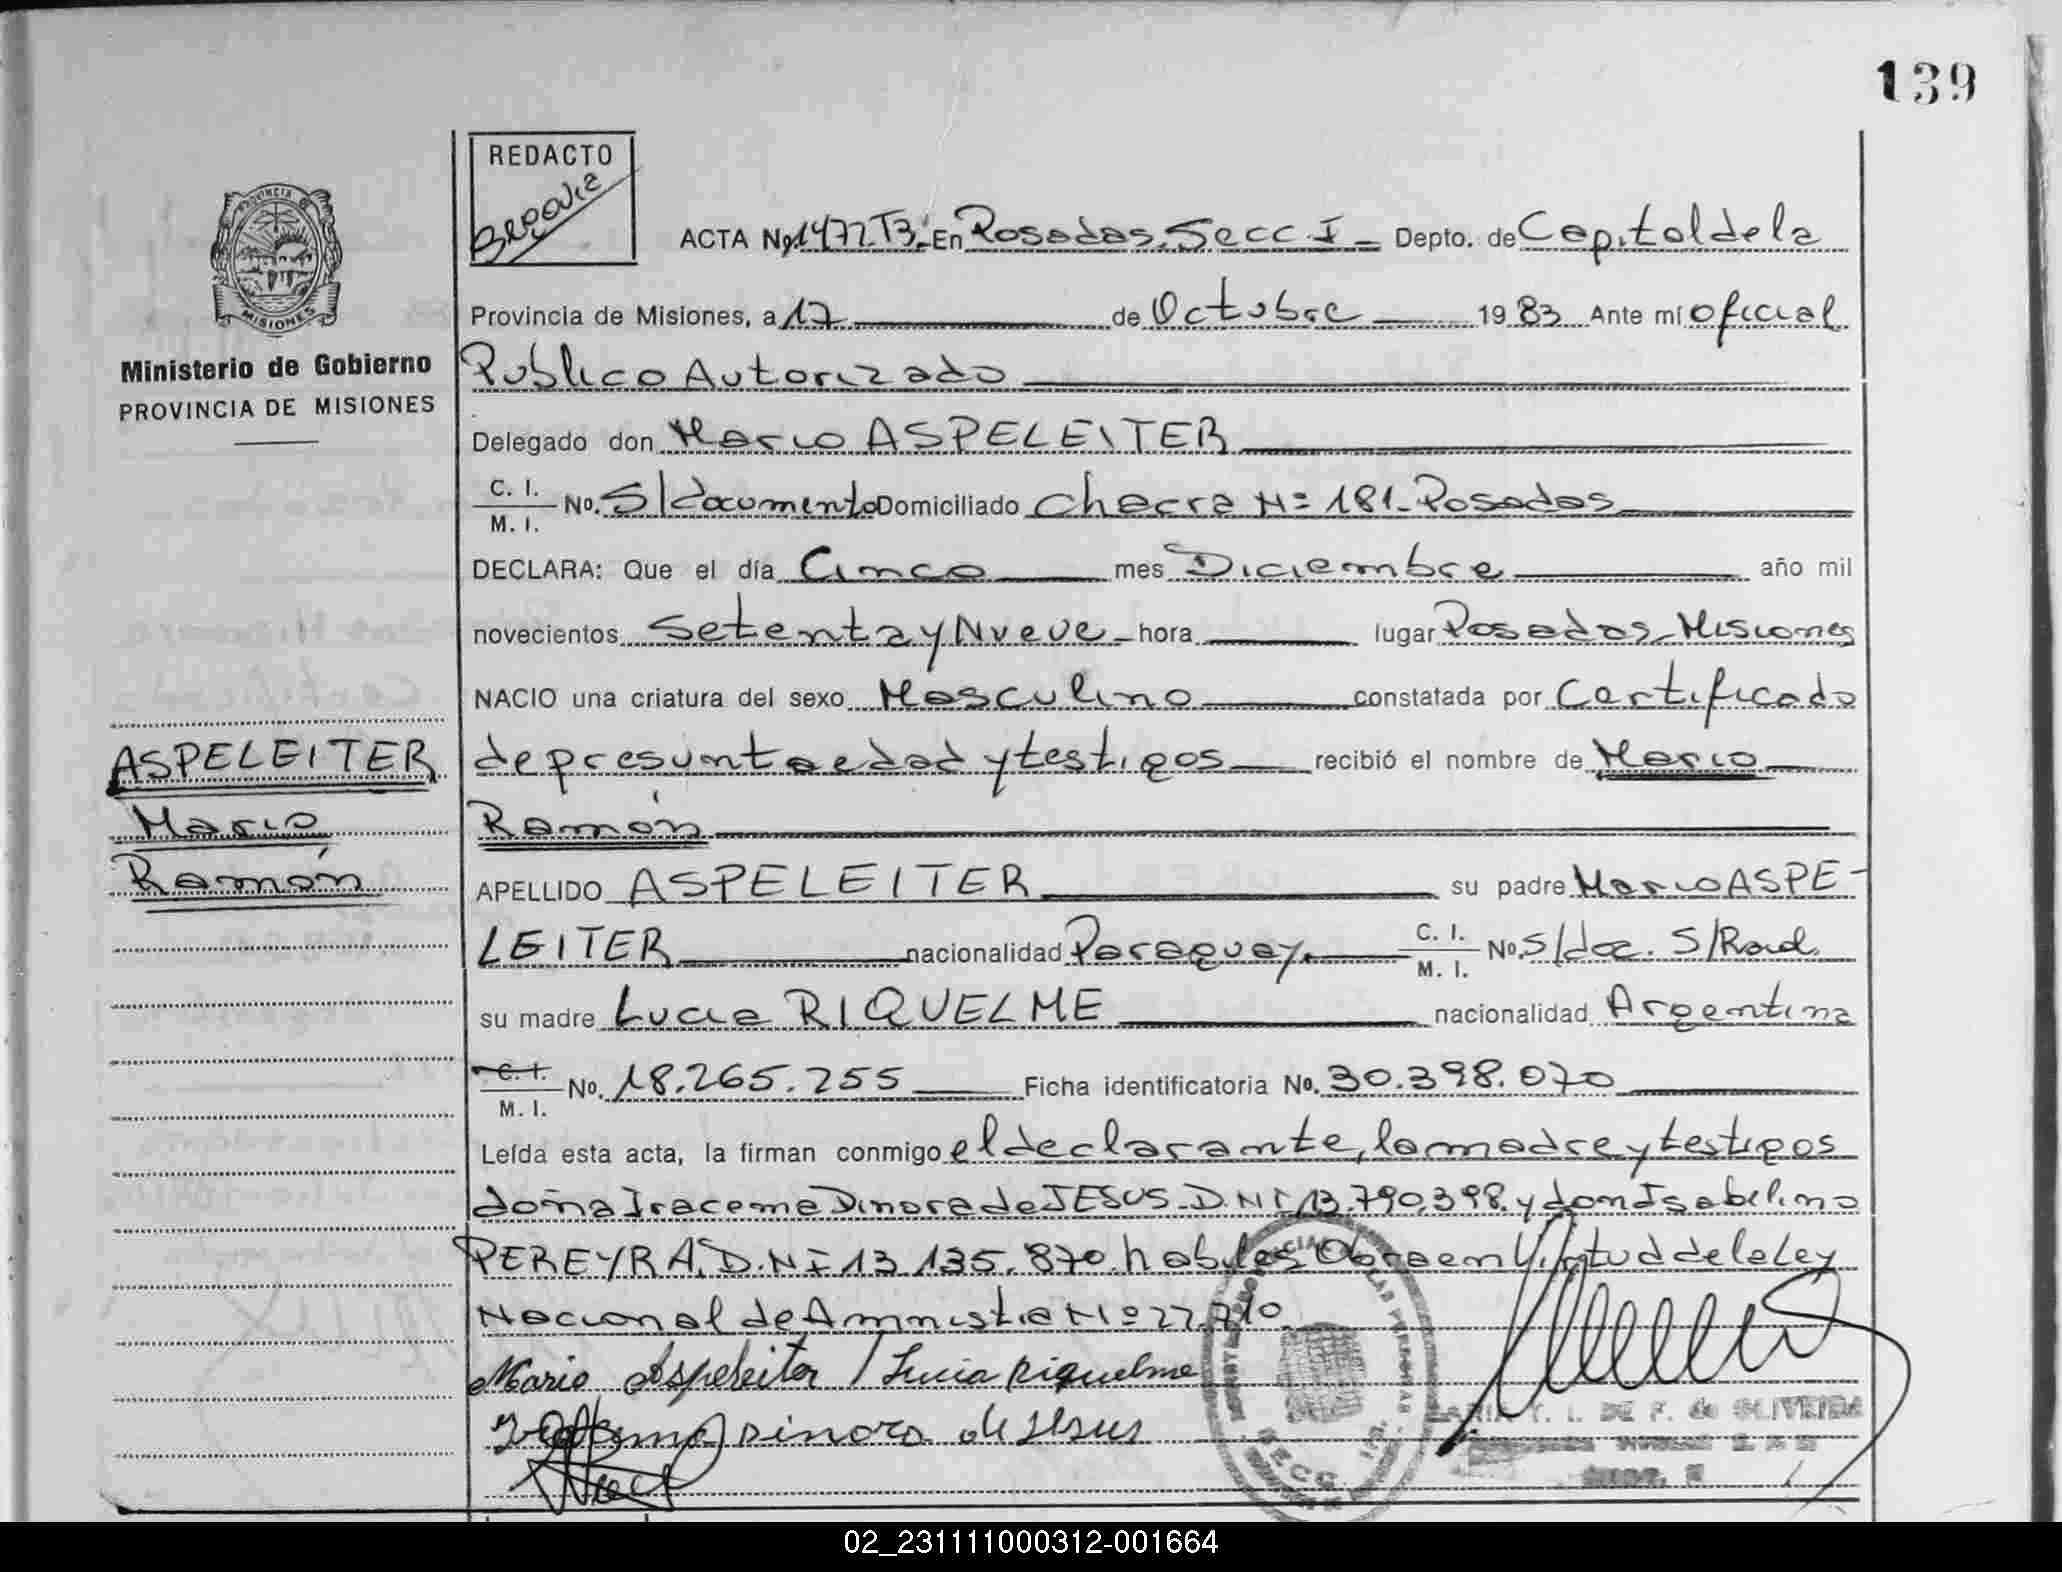 139
REDACTO
PROVINCIA
MISIONES
Ministerio de Gobierno
PROVINCIA DE MISIONES
ACTA No. 1472.T3. En Posadas. Secc I - Depto. de Capital de la
Provincia de Misiones, a 17 de Octubre 1983 Ante mí oficial
Publico Autorizado
Delegado don Mario ASPELEITER
C. I.
M. I. No. S/documento Domiciliado Chacra Nº 181. Posadas
DECLARA: Que el día Cinco mes Diciembre año mil
novecientos Setenta y Nueve - hora lugar Posadas, Misiones
NACIO una criatura del sexo Masculino constatada por Certificado
de presunta edad y testigos recibió el nombre de Mario
Ramón
APELLIDO ASPELEITER su padre Mario ASPE-
LEITER nacionalidad Paraguay. C. I. M. I. No. S/doc. S/Rad.
su madre Lucia RIQUELME nacionalidad Argentina
C. I. M. I. No. 18.265.255 Ficha identificatoria No. 30.398.070
Leída esta acta, la firman conmigo el declarante, la madre y testigos
doña Iracema Dinora de JESUS. D.N.I 13.790.398. y don Isabelino
PEREYRA. D.N.I 13.135.870. habiles Obra en Virtud de la Ley
Nacional de Amnistia Nº 22.710.
Mario Aspeleiter / Lucia Riquelme
dinora de Jesus
ASPELEITER
Mario
Ramón
SECC.
DE F. de OLIVEIRA
02_231111000312-001664